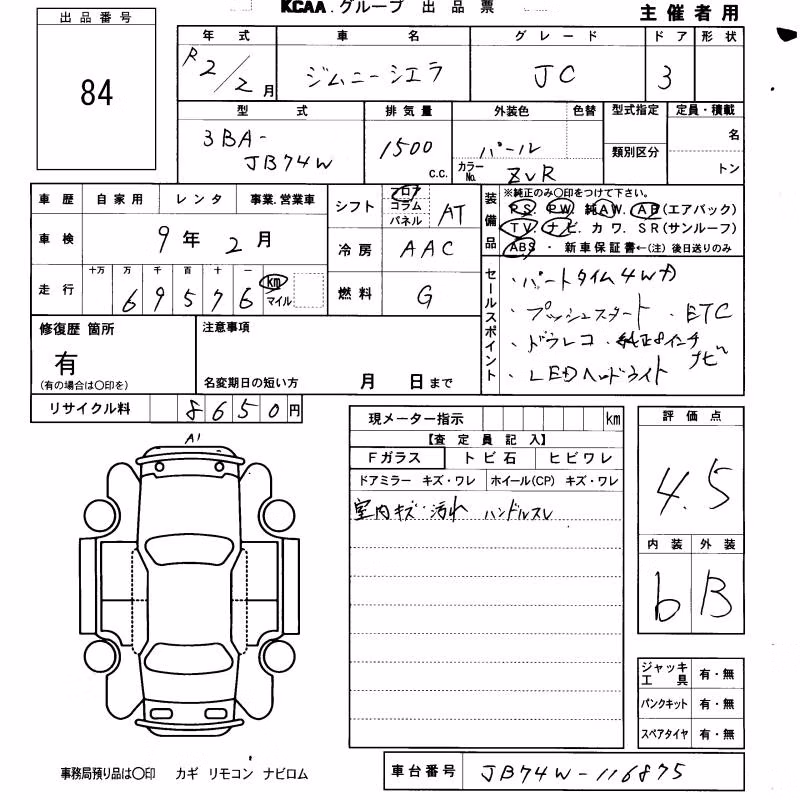 KCAA.グループ 出品票
主催者用
出品番号
84
年式 車名 グレード ドア 形状
R2/2月 ジムニーシエラ JC 3
型式 排気量 外装色 色替 型式指定 定員・積載
3BA-
JB74W
1500 c.c.
パール
カラーNo. ZVR
類別区分
名
トン
車歴 自家用 レンタ 事業.営業車
車検 9年2月
十万 万 千 百 十 一
走行 69576 km
マイル
シフト フロア コラム パネル AT
冷房 AAC
燃料 G
装備品
※純正のみ○印をつけて下さい。
PS. PW. 純AW. AB(エアバック)
TV. ナビ. カワ. SR(サンルーフ)
ABS・新車保証書←(注)後日送りのみ
セールスポイント
・パートタイム4WD
・プッシュスタート ・ETC
・ドラレコ ・純正8インチナビ
・LEDヘッドライト
修復歴 箇所
有
(有の場合は○印を)
注意事項
名変期日の短い方 月 日まで
リサイクル料 8650円
A1
現メーター指示 km
【査定員記入】
Fガラス トビ石 ヒビワレ
ドアミラー キズ・ワレ ホイール(CP) キズ・ワレ
室内キズ・汚れ ハンドルスレ
評価点
4.5
内装 外装
b B
ジャッキ工具 有・無
パンクキット 有・無
スペアタイヤ 有・無
事務局預り品は○印 カギ リモコン ナビロム
車台番号 JB74W-116875